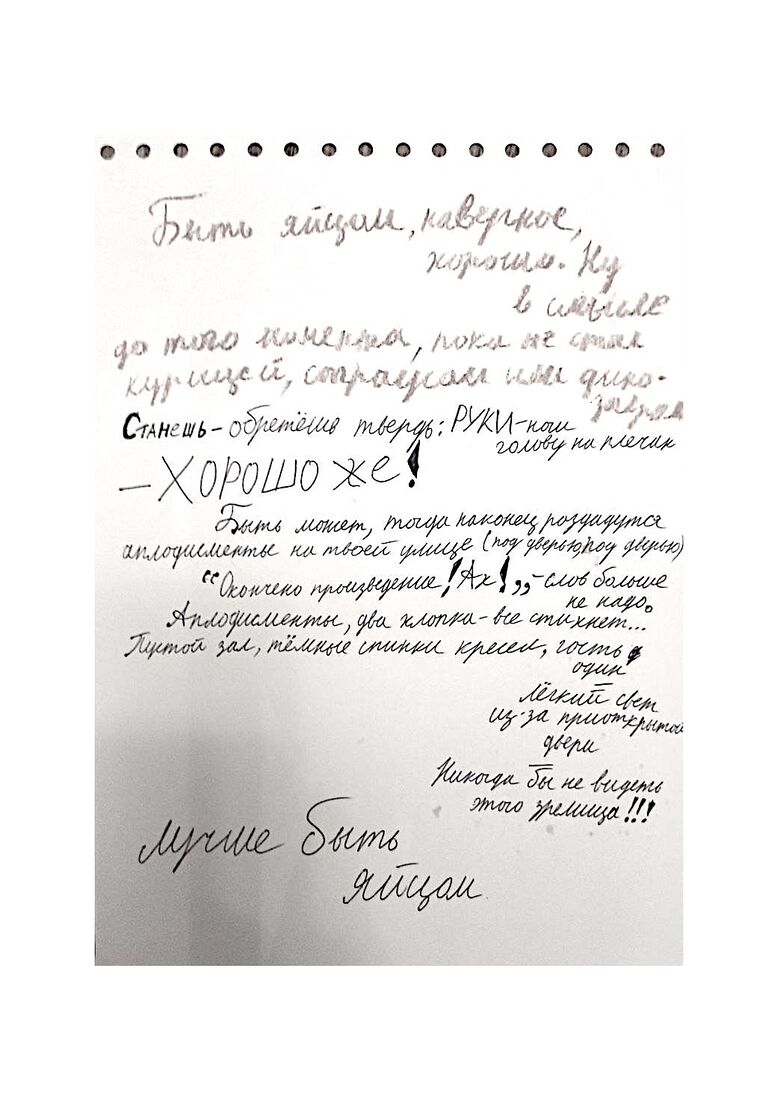 Быть яйцом, наверное,
хорошо. Ну
в смысле
до того момента, пока не стал
курицей, страусом или дино-
завром
Станешь – обретёшь твердь: РУКИ – ноги
голову на плечах
– ХОРОШО же!
Быть может, тогда наконец раздадутся
аплодисменты на твоей улице (под дверью/под дверью)
“Окончено произведение! Ах!„ – слов больше
не надо.
Аплодисменты, два хлопка – все стихнет...
Пустой зал, тёмные спинки кресел, гость
один
лёгкий свет
из-за приоткрытой
двери
Никогда бы не видеть
этого зрелища!!!
лучше быть
яйцом